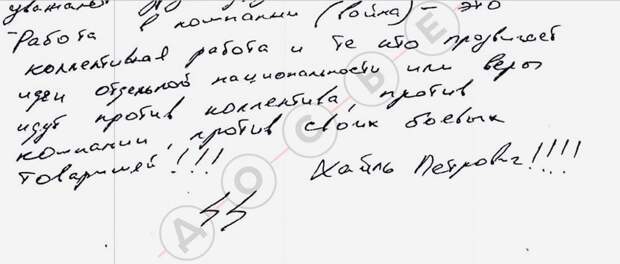 -Работа в компании (война) - это
коллективная работа и те кто продвигает
идеи отдельной национальности или веры
идут против коллектива, против
компании, против своих боевых
товарищей!!!
Хайль Петрович!!!!
SS
ДОСЬЕ